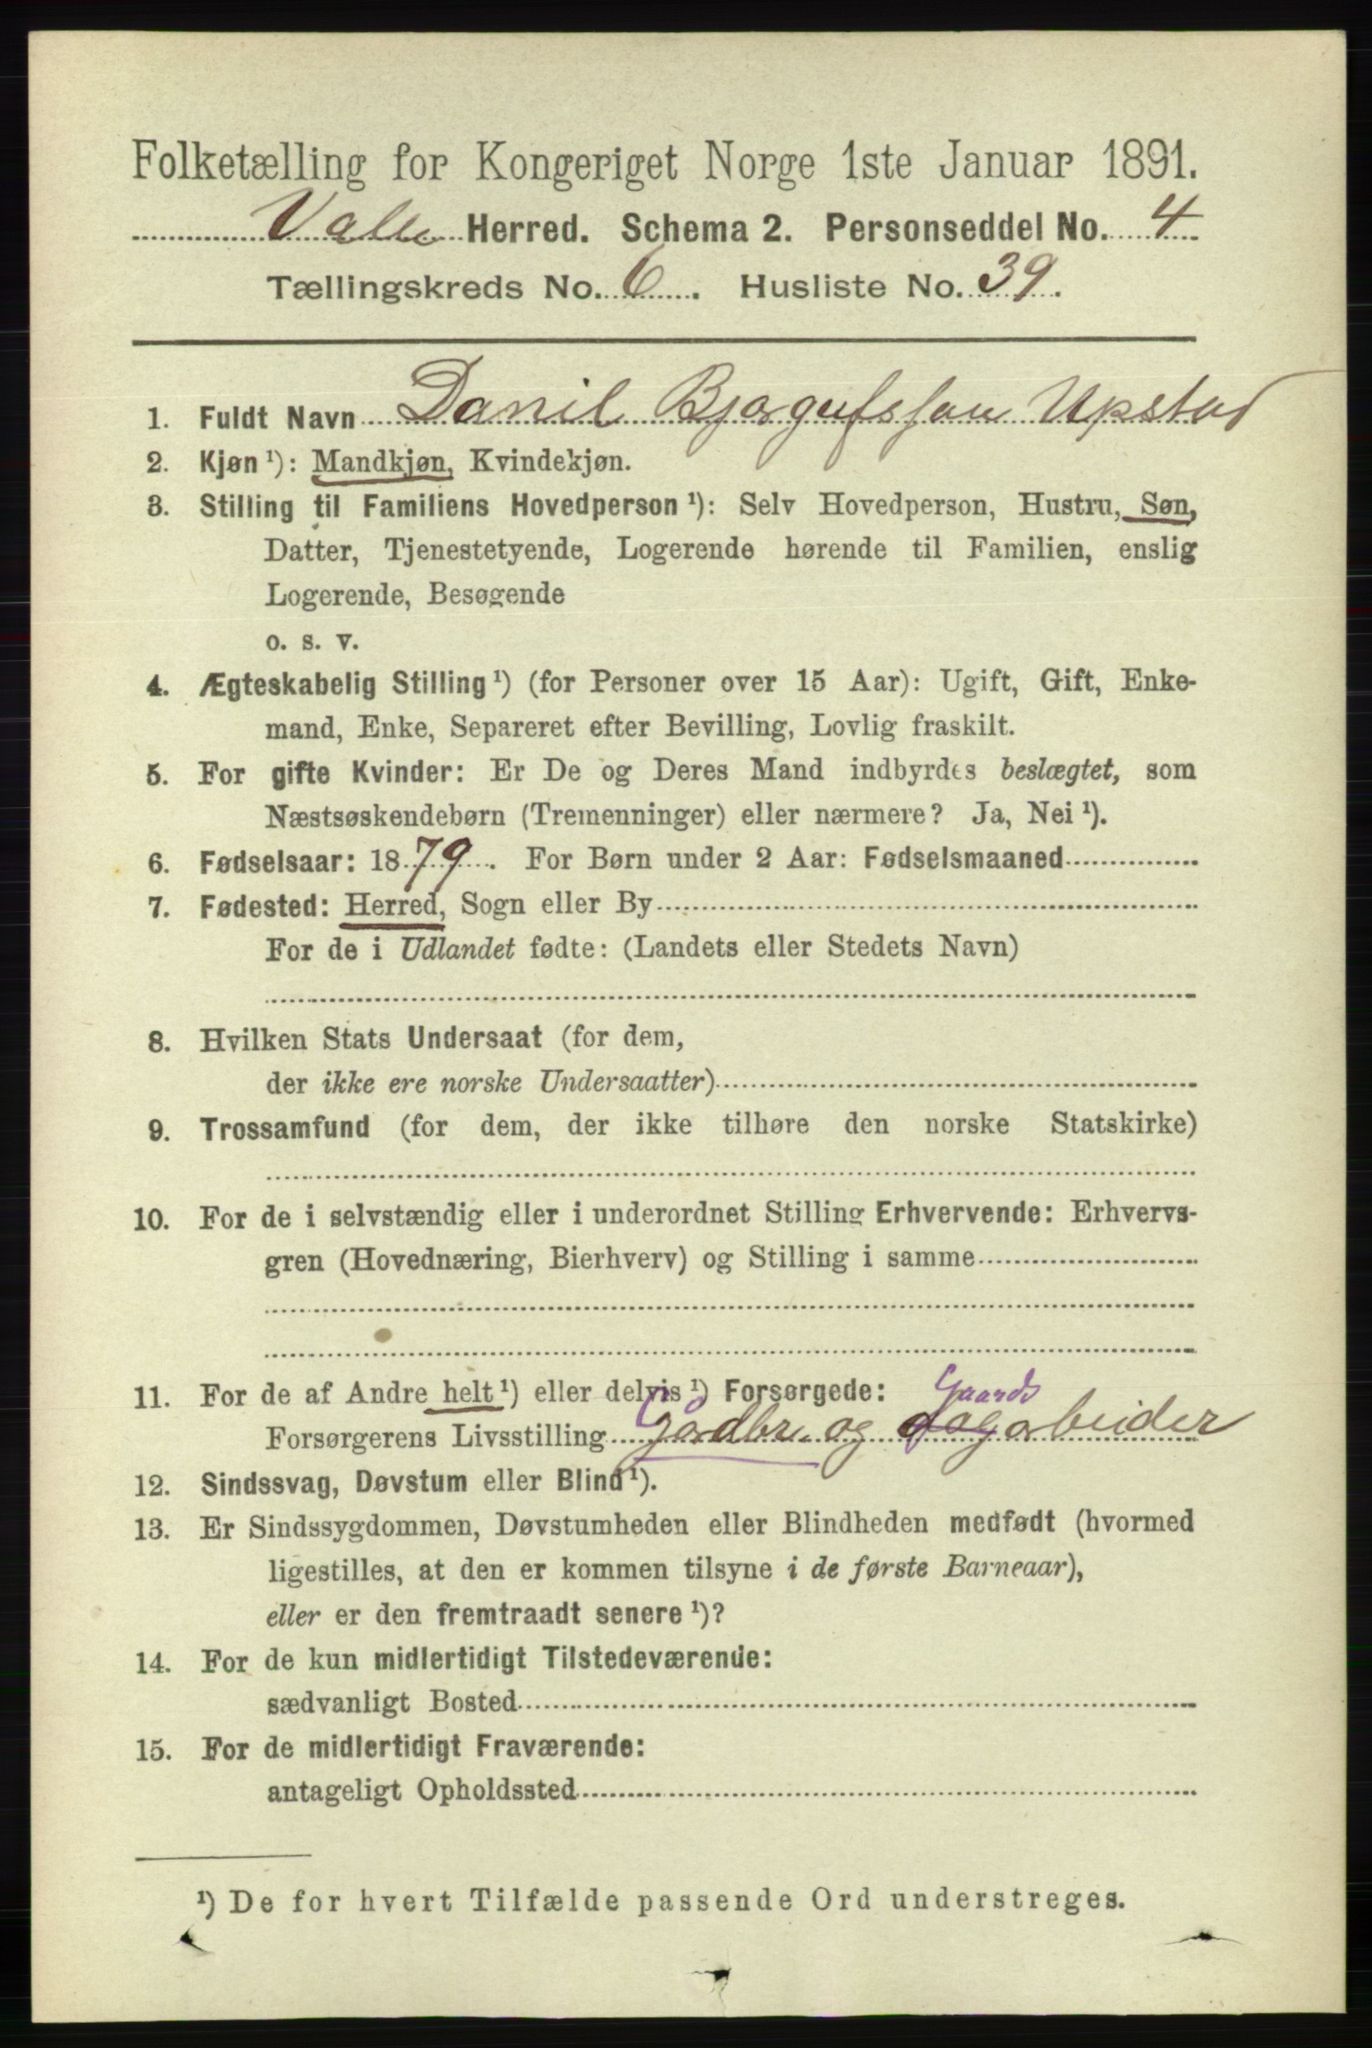 Folketælling for Kongeriget Norge 1ste Januar 1891.
Valle Herred. Schema 2. Personseddel No. 4
Tællingskreds No. 6. Husliste No. 39.
1. Fuldt Navn Danil Bjorgufsson Upstad
2. Kjøn ¹): Mandkjøn, Kvindekjøn.
3. Stilling til Familiens Hovedperson ¹): Selv Hovedperson, Hustru, Søn,
Datter, Tjenestetyende, Logerende hørende til Familien, enslig
Logerende, Besøgende
o. s. v.
4. Ægteskabelig Stilling ¹) (for Personer over 15 Aar): Ugift, Gift, Enke-
mand, Enke, Separeret efter Bevilling, Lovlig fraskilt.
5. For gifte Kvinder: Er De og Deres Mand indbyrdes beslægtet, som
Næstsøskendebørn (Tremenninger) eller nærmere? Ja, Nei ¹).
6. Fødselsaar: 1879. For Børn under 2 Aar: Fødselsmaaned
7. Fødested: Herred, Sogn eller By
For de i Udlandet fødte: (Landets eller Stedets Navn)
8. Hvilken Stats Undersaat (for dem,
der ikke ere norske Undersaatter)
9. Trossamfund (for dem, der ikke tilhøre den norske Statskirke)
10. For de i selvstændig eller i underordnet Stilling Erhvervende: Erhvervs-
gren (Hovednæring, Bierhverv) og Stilling i samme
11. For de af Andre helt ¹) eller delvis ¹) Forsørgede: Gaards
Forsørgerens Livsstilling Gardbr. og dagarbeider
12. Sindssvag, Døvstum eller Blind ¹).
13. Er Sindssygdommen, Døvstumheden eller Blindheden medfødt (hvormed
ligestilles, at den er kommen tilsyne i de første Barneaar),
eller er den fremtraadt senere ¹)?
14. For de kun midlertidigt Tilstedeværende:
sædvanligt Bosted
15. For de midlertidigt Fraværende:
antageligt Opholdssted
¹) De for hvert Tilfælde passende Ord understreges.